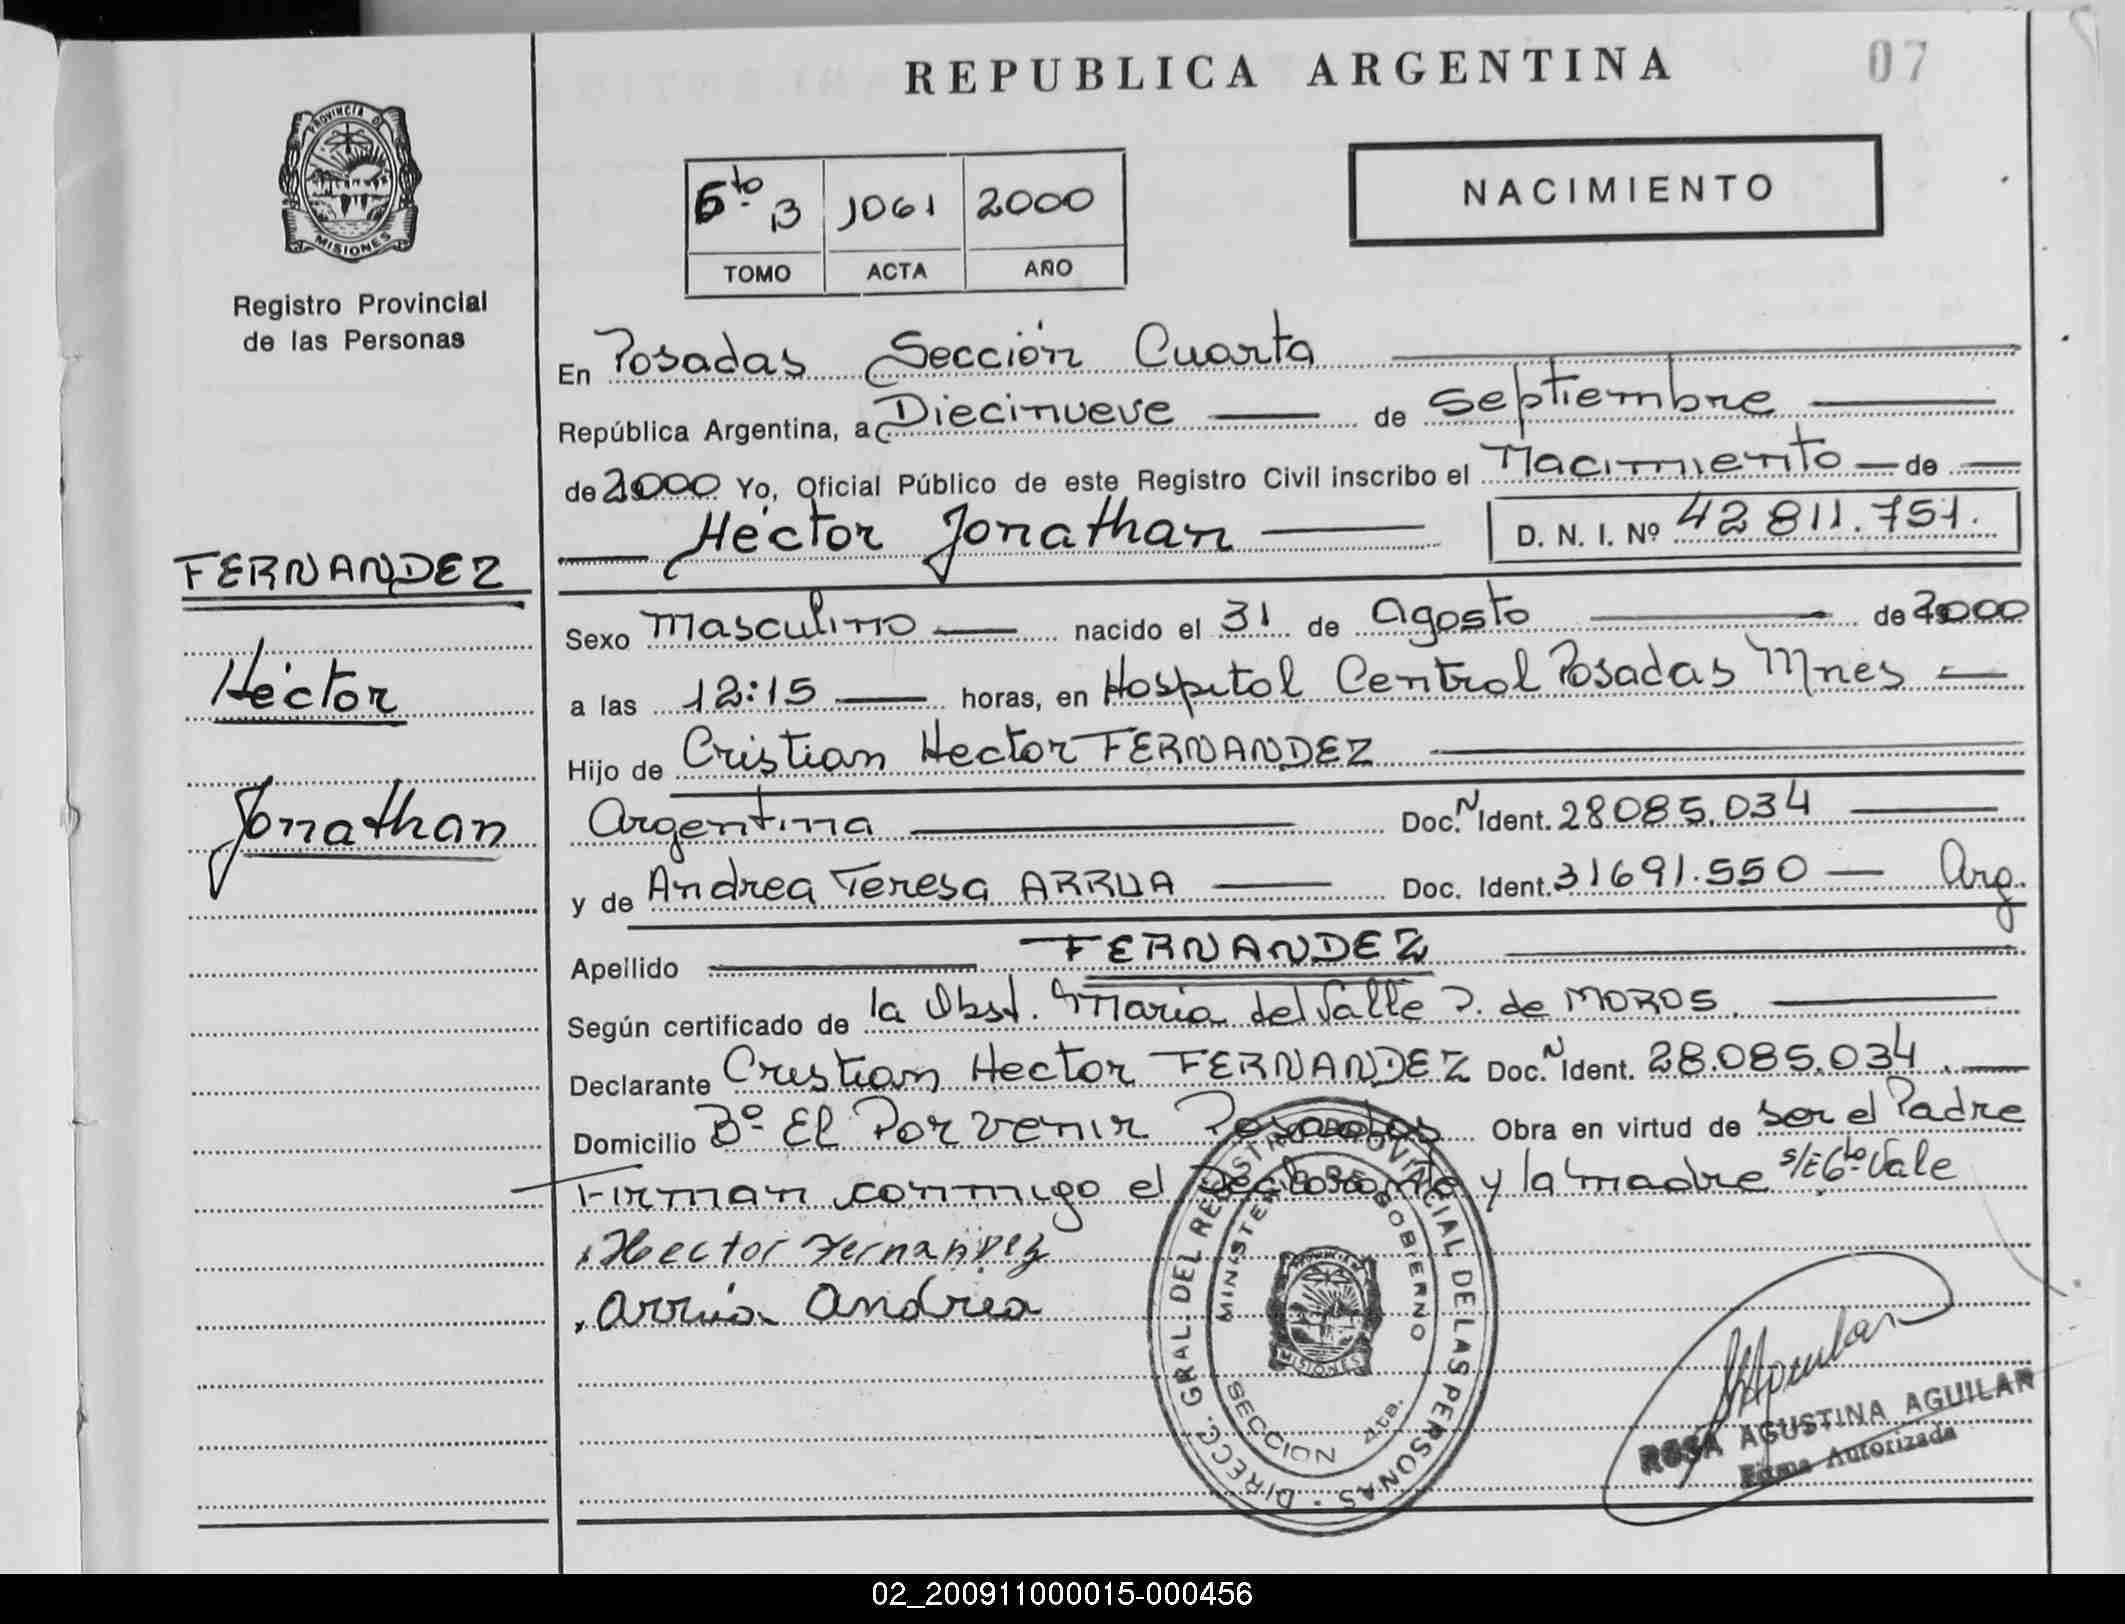 REPUBLICA ARGENTINA
07
PROVINCIA DE
MISIONES
Registro Provincial
de las Personas
6to. B 1061 2000
TOMO ACTA AÑO
NACIMIENTO
En Posadas Sección Cuarta
República Argentina, a Diecinueve de Septiembre
de 2000 Yo, Oficial Público de este Registro Civil inscribo el Nacimiento de
Héctor Jonathan D. N. I. Nº 42 811.751.
FERNANDEZ
Héctor
Jonathan
Sexo Masculino nacido el 31 de Agosto de 2000
a las 12:15 horas, en Hospital Central Posadas Mnes
Hijo de Cristian Hector FERNANDEZ
Argentina Doc. N Ident. 28.085.034
y de Andrea Teresa ARRUA Doc. Ident. 31691.550 Arg.
Apellido FERNANDEZ
Según certificado de la Obst. Maria del Valle P. de MOROS.
Declarante Cristian Hector FERNANDEZ Doc. N Ident. 28.085.034.
Domicilio Bº El Porvenir Posadas Obra en virtud de ser el Padre
Firman conmigo el Declarante y la madre s/E 6to. Vale
Hector Fernandez
Arrua Andrea
DIRECC. GRAL. DEL REGISTRO PROVINCIAL DE LAS PERSONAS
MINISTERIO DE GOBIERNO
MISIONES
SECCION 4ta.
ROSA AGUSTINA AGUILAR
Firma Autorizada
02_200911000015-000456